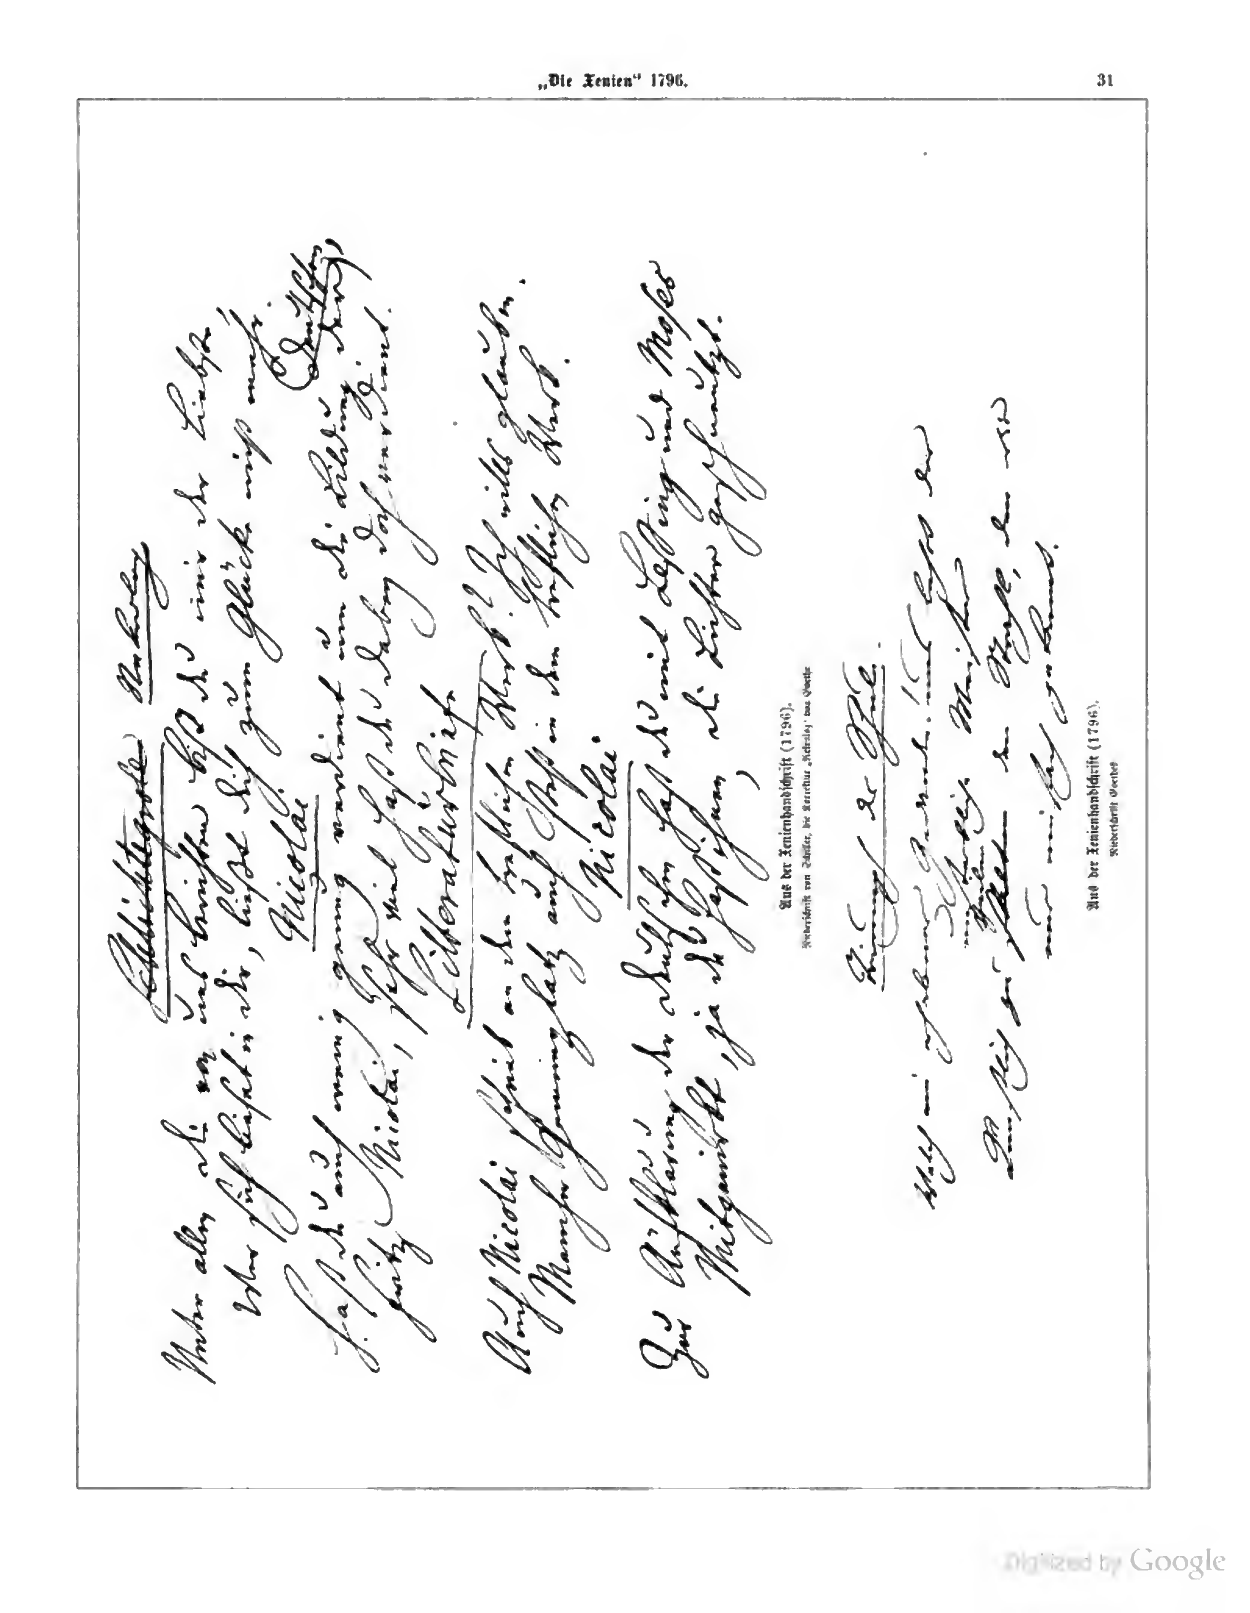 „Die Xenien“ 1796. 31
Nekrolog
Unter allen die von uns berichten bist du mir der liebste,
Wer sich lieset in dir, liest dich zum Glücke nicht mehr.
Nicolai
Hast du auch wenig genug verdient um die Bildung der Deutschen,
Fritz Nicolai, sehr viel hast du dabey doch verdient.
Litteraturbriefe
Auch Nicolai schrieb an dem treflichen Werk? Ich wills glauben.
Mancher Gemeinplatz auch steht in dem treflichen Werk.
Nicolai
Zur Aufklärung der Deutschen hast du mit Lessing und Moses
Mitgewirkt, ja du hast ihnen die Lichter geschneutzt.
Aus der Xenienhandschrift (1796).
Niederschrift von Schiller, die Korrektur „Nekrolog“ von Goethe
Triumph der Schule.
Welch ein erhabner Gedanke! lehrt der
unsterbliche Meister
Künstlich zu theilen den Strahl, den wir
nur einfach gekannt.
Aus der Xenienhandschrift (1796).
Niederschrift Goethes
Digitized by Google